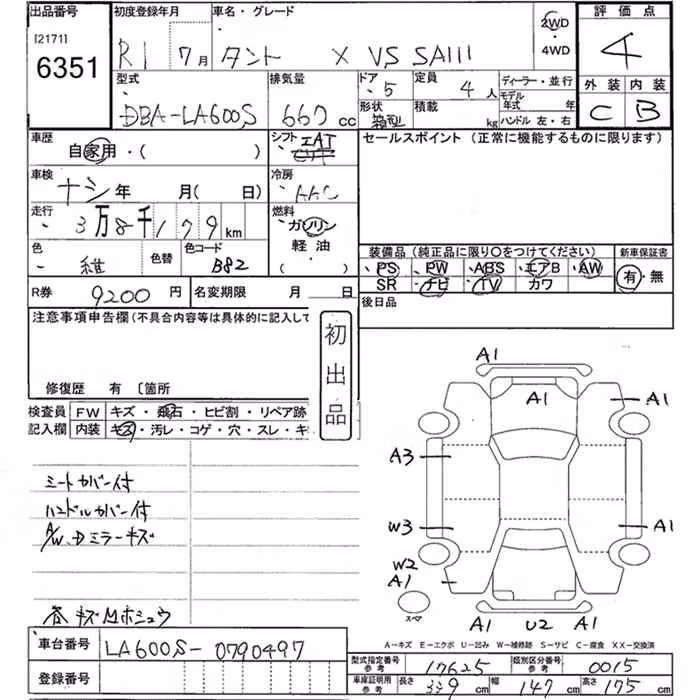 出品番号 初度登録年月 車名・グレード 2WD 評価点
[2171] ・4WD
6351 R1 7月 タント X VS SAIII 4
型式 排気量 ドア 定員 ディーラー・並行 外装 内装
DBA-LA600S 660 cc ・5 4人 モデル年式 年 C B
形状 箱型 積載 kg ハンドル 左・右
車歴 自家用・( ) シフト IAT セールスポイント (正常に機能するものに限ります)
車検 ナシ 年 月( 日) 冷房 AAC
走行 3万8千179km 燃料 ガソリン
軽油
・( )
色 ・紺 色替 色コード B82 装備品(純正品に限り○をつけてください) 新車保証書
・PS ・PW ・ABS ・エアB ・AW 有・無
SR ・ナビ ・TV カワ
R券 9200円 名変期限 月 日 後日品
注意事項申告欄(不具合内容等は具体的に記入して
初出品
修復歴 有 〔箇所
検査員 FW キズ・飛石・ヒビ割・リペア跡
記入欄 内装 キズ・汚レ・コゲ・穴・スレ・キ
シートカバー付
ハンドルカバー付
A/W、Dミラーキズ
キズ
ホシュウ
A1
A1 A1
A3
W3 A1
W2
A1
スペア
A1 U2 A1
A-キズ E-エクボ U-凹み W-補修跡 S-サビ C-腐食 XX-交換済
車台番号 LA600S-0790497
登録番号
型式指定番号 参考 17625 類別区分番号 参考 0015
車庫証明用 参考 長さ 339cm 幅 147cm 高さ 175cm